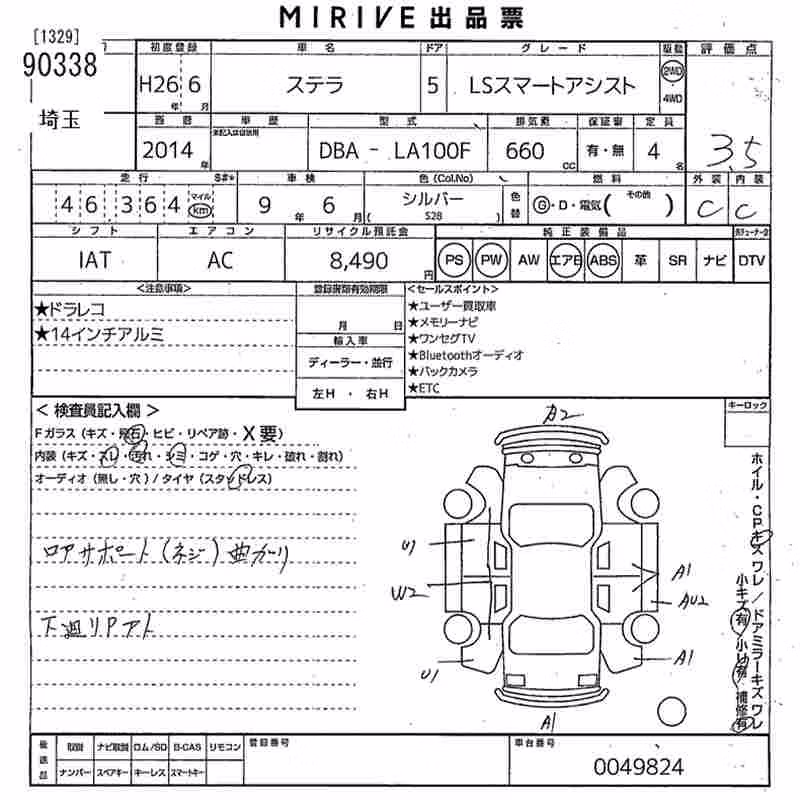 MIRIVE 出品票
[1329]
90338
埼玉
初度登録 車名 ドア グレード 駆動 評価点
H26 6 ステラ 5 LSスマートアシスト 2WD 4WD
年 月
車歴 型式 排気量 保証書 定員
未記入は自家用
2014年 DBA - LA100F 660cc 有・無 4名 3.5
走行 S#* 車検 色(Col.No) 燃料 外装 内装
46,364 マイル km 9年 6月 シルバー ( S28 ) 色替 G・D・電気( その他 ) C C
シフト エアコン リサイクル預託金 純正装備品
IAT AC 8,490円 PS PW AW エアB ABS 革 SR ナビ DTV
<注意事項> 登録書類有効期限 <セールスポイント>
★ドラレコ
★14インチアルミ
月 日
輸入車
ディーラー・並行
左H ・ 右H
★ユーザー買取車
★メモリーナビ
★ワンセグTV
★Bluetoothオーディオ
★バックカメラ
★ETC
キーロック
< 検査員記入欄 >
Fガラス(キズ・飛石・ヒビ・リペア跡・X要)
内装(キズ・スレ・汚れ・シミ・コゲ・穴・キレ・破れ・割れ)
オーディオ(無し・穴)/タイヤ(スタッドレス)
ロアサポート(ネジ)曲がり
下廻りPアト
A2
U1
W2
U1
A1
AU2
A1
A1
ホイル・CPキズワレ/ドアミラーキズワレ
小キズ有 小凹有 補修有
後送品 取説 ナビ取説 ロム/SD B-CAS リモコン 登録番号 車台番号
ナンバー スペアキー キーレス スマートキー
0049824